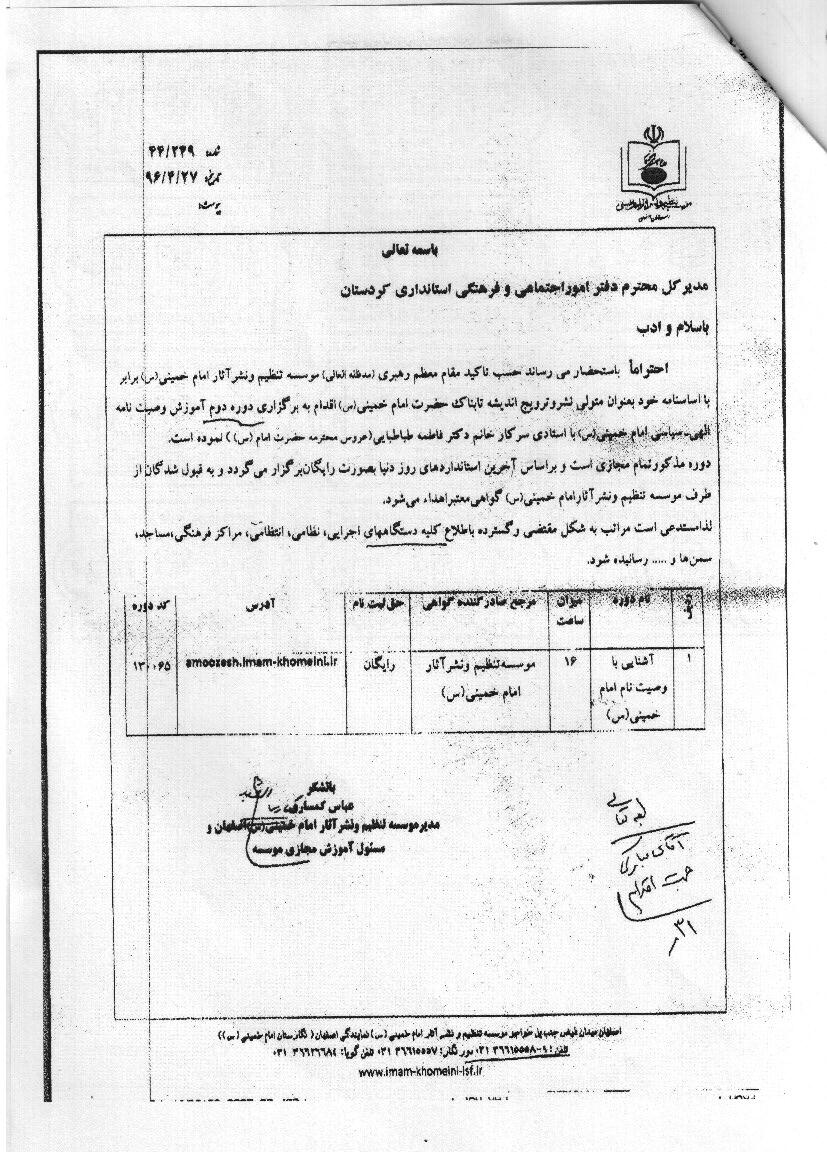 شماره ۴۴/۲۴۹
تاریخ ۹۶/۴/۲۷
پیوست
باسمه تعالی
مدیرکل محترم دفتر اموراجتماعی و فرهنگی استانداری کردستان
باسلام و ادب
احتراماً باستحضار می رساند حسب تاکید مقام معظم رهبری (مدظله العالی) موسسه تنظیم ونشرآثار امام خمینی(س) برابر
با اساسنامه خود بعنوان متولی نشروترویج اندیشه تابناک حضرت امام خمینی(س) اقدام به برگزاری دوره دوم آموزش وصیت نامه
الهی-سیاسی امام خمینی(س) با استادی سرکار خانم دکتر فاطمه طباطبایی(عروس محترمه حضرت امام (س)) نموده است.
دوره مذکورتمام مجازی است و براساس آخرین استانداردهای روز دنیا بصورت رایگان‌برگزار می‌گردد و به قبول شدگان از
طرف موسسه تنظیم ونشرآثارامام خمینی(س) گواهی معتبراهداء می‌شود.
لذامستدعی است مراتب به شکل مقتضی وگسترده باطلاع کلیه دستگاههای اجرایی، نظامی، انتظامی، مراکز فرهنگی،مساجد،
سمن‌ها و ..... رسانیده شود.
ردیف نام دوره میزان ساعت مرجع صادرکننده گواهی حق ثبت نام آدرس کد دوره
۱ آشنایی با وصیت نام امام خمینی(س) ۱۶ موسسه‌تنظیم ونشرآثار امام خمینی(س) رایگان amoozesh.imam-khomeini.ir ۱۳۰۰۶۵
باتشکر
عباس کمساری
مدیرموسسه تنظیم ونشرآثار امام خمینی(س)اصفهان و
مسئول آموزش مجازی موسسه
آقای
جهت اقدام
۳۱
اصفهان میدان فیض جنب پل خواجو موسسه تنظیم و نشر آثار امام خمینی (س) نمایندگی اصفهان ( نگارستان امام خمینی (س))
تلفن: ۹-۳۶۶۱۵۵۵۸ ۰۳۱ دور نگار: ۳۶۶۱۵۵۵۷ ۰۳۱ تلفن گویا: ۳۶۶۲۶۶۸۴ ۰۳۱
www.imam-khomeini-isf.ir